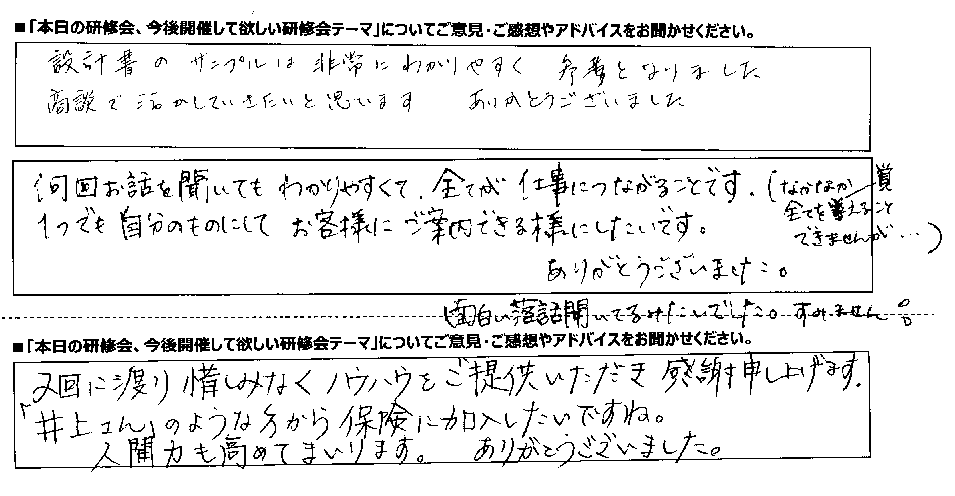 ■「本日の研修会、今後開催して欲しい研修会テーマ」についてご意見・ご感想やアドバイスをお聞かせください。
設計書のサンプルは非常にわかりやすく 参考となりました
商談で活かしていきたいと思います ありがとうございました
何回お話を聞いてもわかりやすくて、全てが仕事につながることです。(なかなか覚
全てを覚えること
1つでも自分のものにしてお客様にご案内できる様にしたいです。
できませんが…)
ありがとうございました。
面白い落語聞いてるみたいでした。すみません。
■「本日の研修会、今後開催して欲しい研修会テーマ」についてご意見・ご感想やアドバイスをお聞かせください。
2回に渡り惜しみなくノウハウをご提供いただき感謝申し上げます。
「井上さん」のような方から保険に加入したいですね。
人間力も高めてまいります。 ありがとうございました。